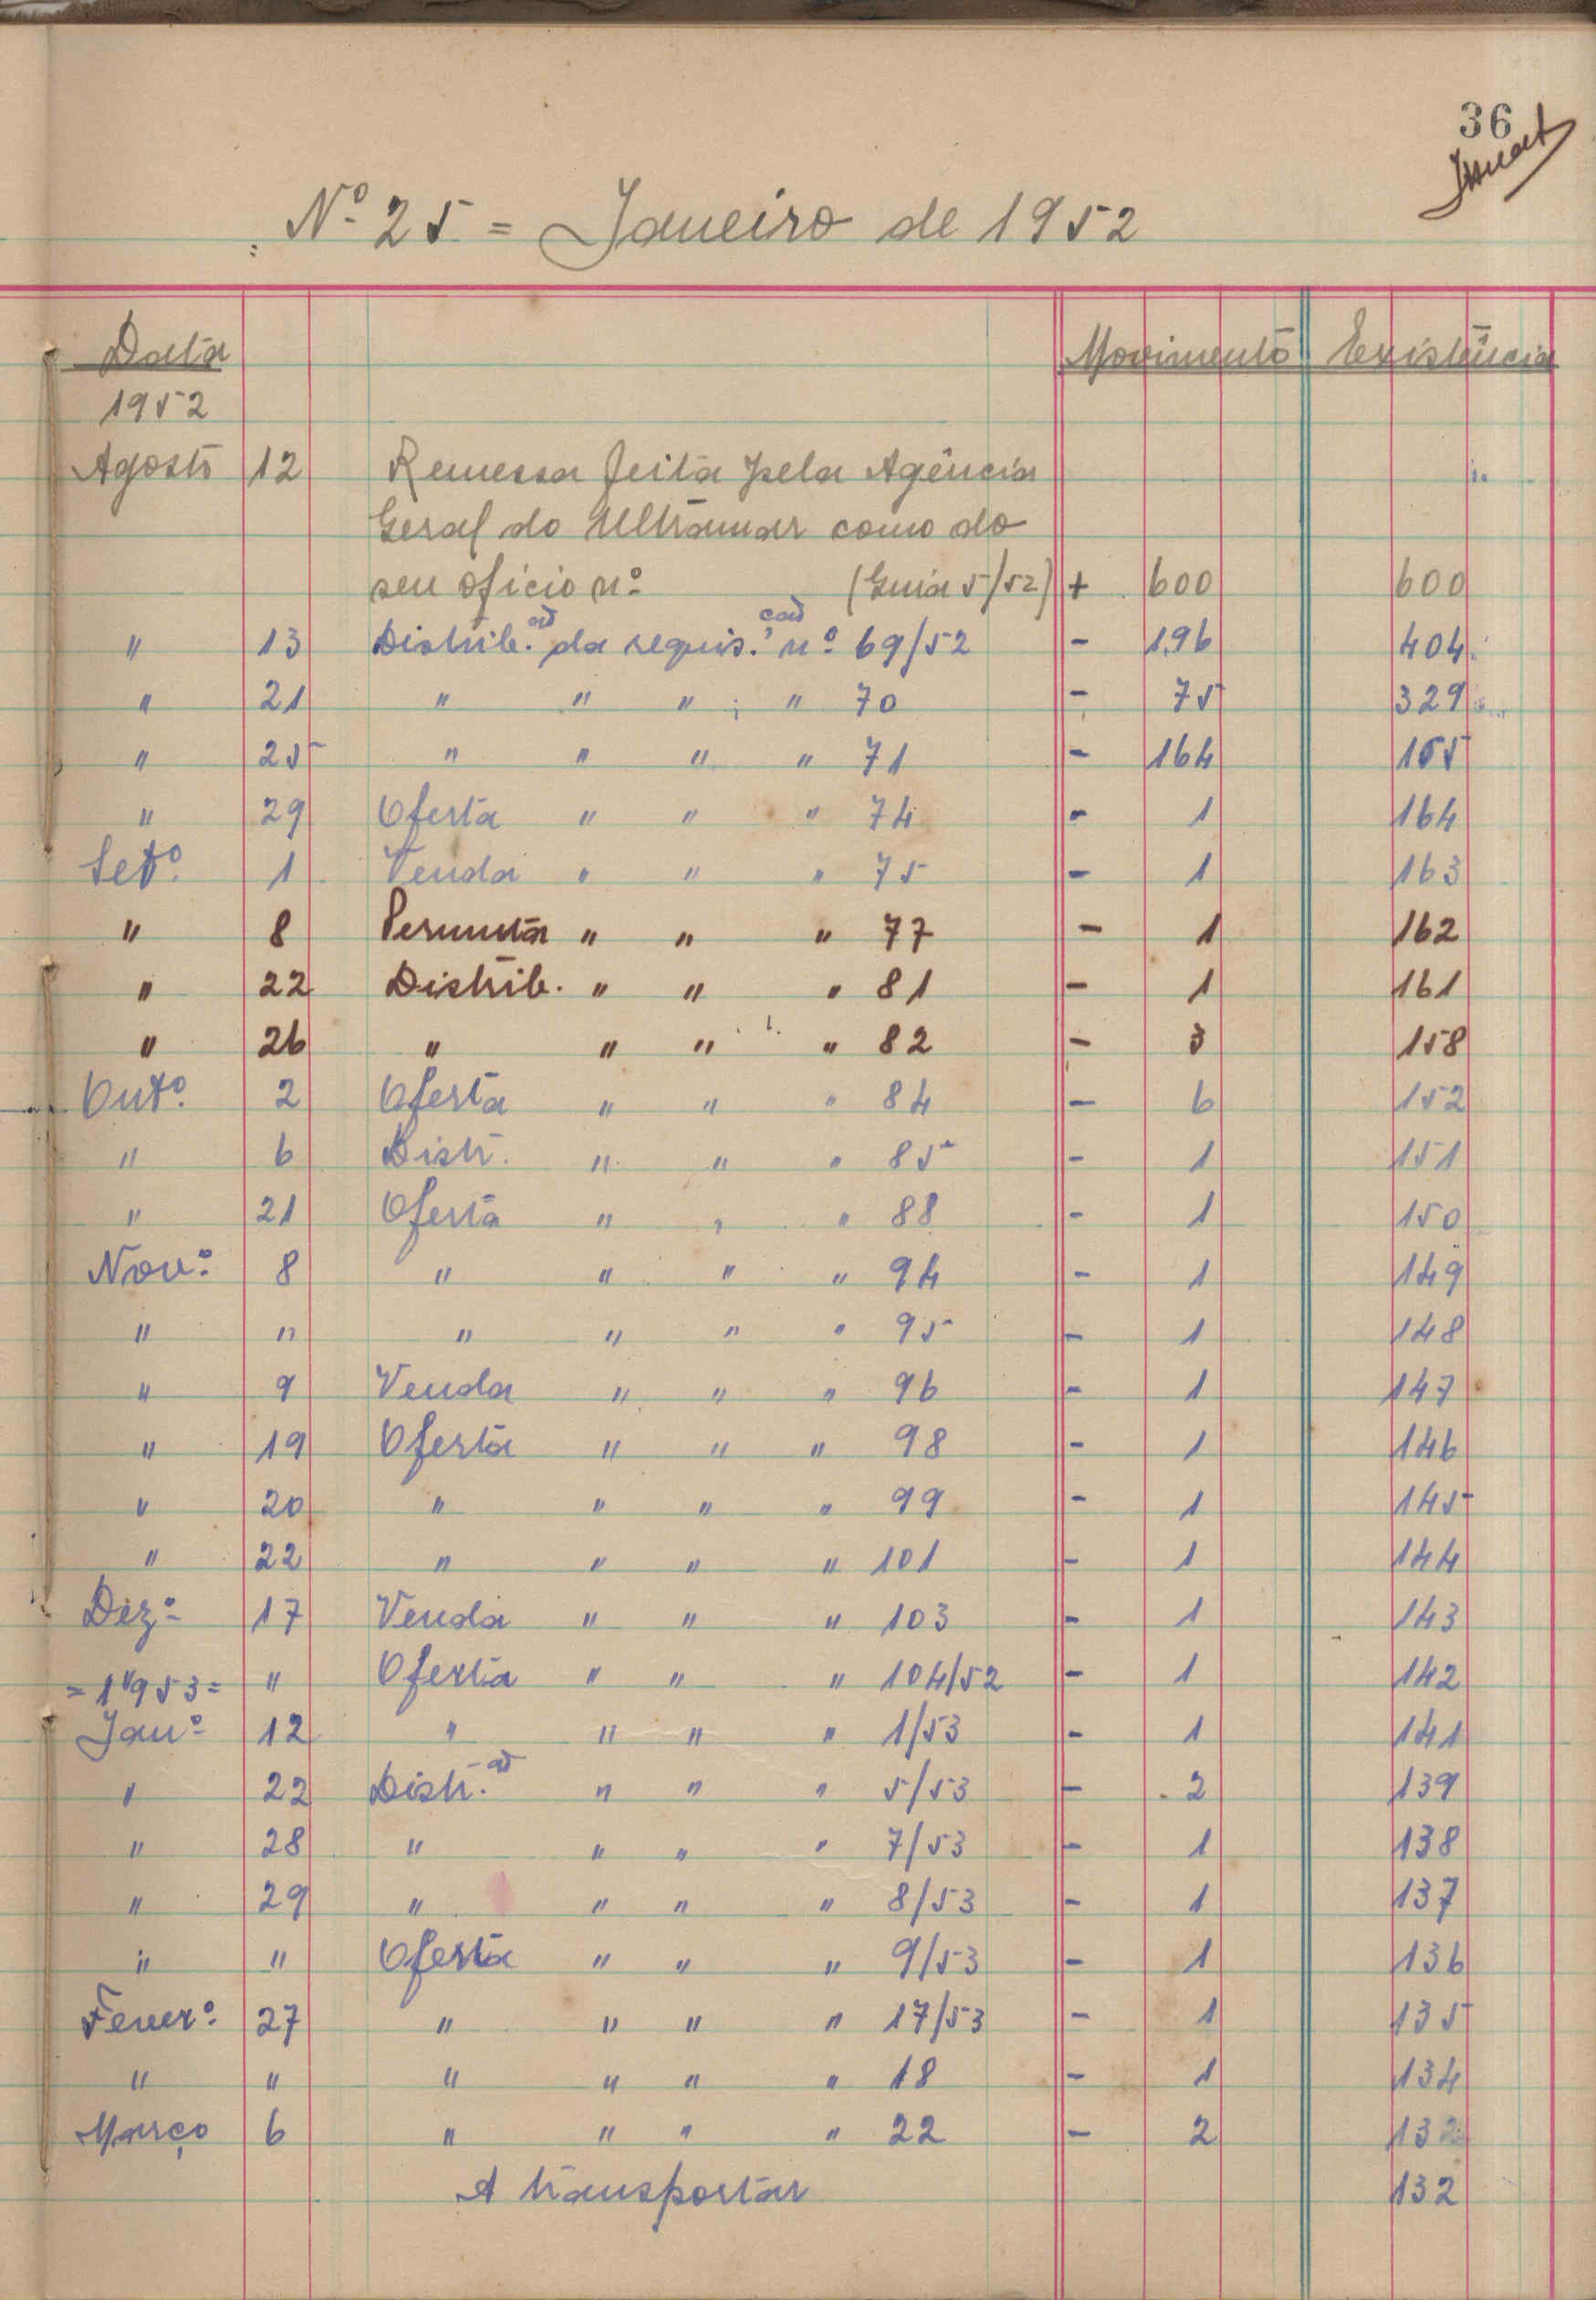 36
Nº 25 = Janeiro de 1952
Data Movimento Existência
1952
Agosto 12 Remessa feita pela Agência
Geral do Ultramar como do
seu ofício nº (Guia 5/52) + 600 600
" 13 Distrib.ão da requis.ção nº 69/52 - 196 404
" 21 " " " " 70 - 75 329
" 25 " " " " 71 - 164 165
" 29 Oferta " " " 74 - 1 164
Setº 1 Venda " " " 75 - 1 163
" 8 Permuta " " " 77 - 1 162
" 22 Distrib. " " " 81 - 1 161
" 26 " " " " 82 - 3 158
Outº 2 Oferta " " " 84 - 6 152
" 6 Distr. " " " 85 - 1 151
" 21 Oferta " " " 88 - 1 150
Novº 8 " " " " 94 - 1 149
" " " " " " 95 - 1 148
" 9 Venda " " " 96 - 1 147
" 19 Oferta " " " 98 - 1 146
" 20 " " " " 99 - 1 145
" 22 " " " " 101 - 1 144
Dezº 17 Venda " " " 103 - 1 143
" " Oferta " " " 104/52 - 1 142
= 1953 =
Janº 12 " " " " 1/53 - 1 141
" 22 Distr.ão " " " 5/53 - 2 139
" 28 " " " " 7/53 - 1 138
" 29 " " " " 8/53 - 1 137
" " Oferta " " " 9/53 - 1 136
Feverº 27 " " " " 17/53 - 1 135
" " " " " " 18 - 1 134
Março 6 " " " " 22 - 2 132
A transportar 132